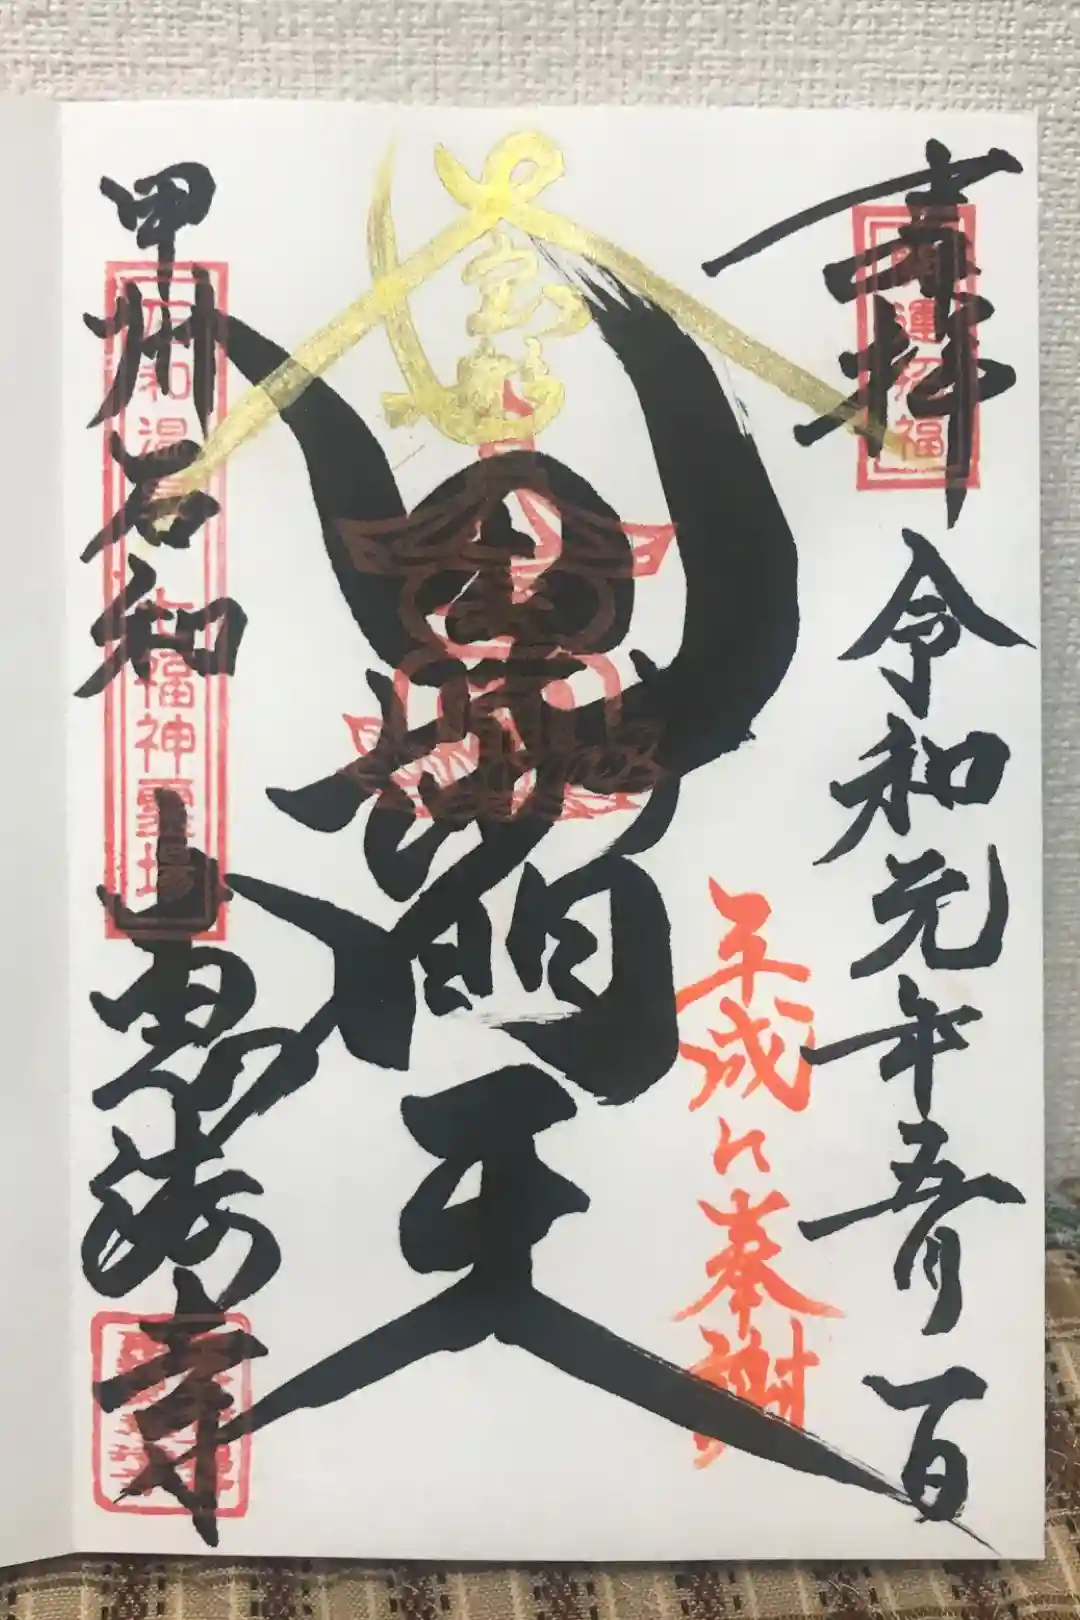 奉拝
令和元年五月一日
開運招福
平成に奉謝
毘沙門天
甲州石和
恵法寺
石和温泉七福神霊場